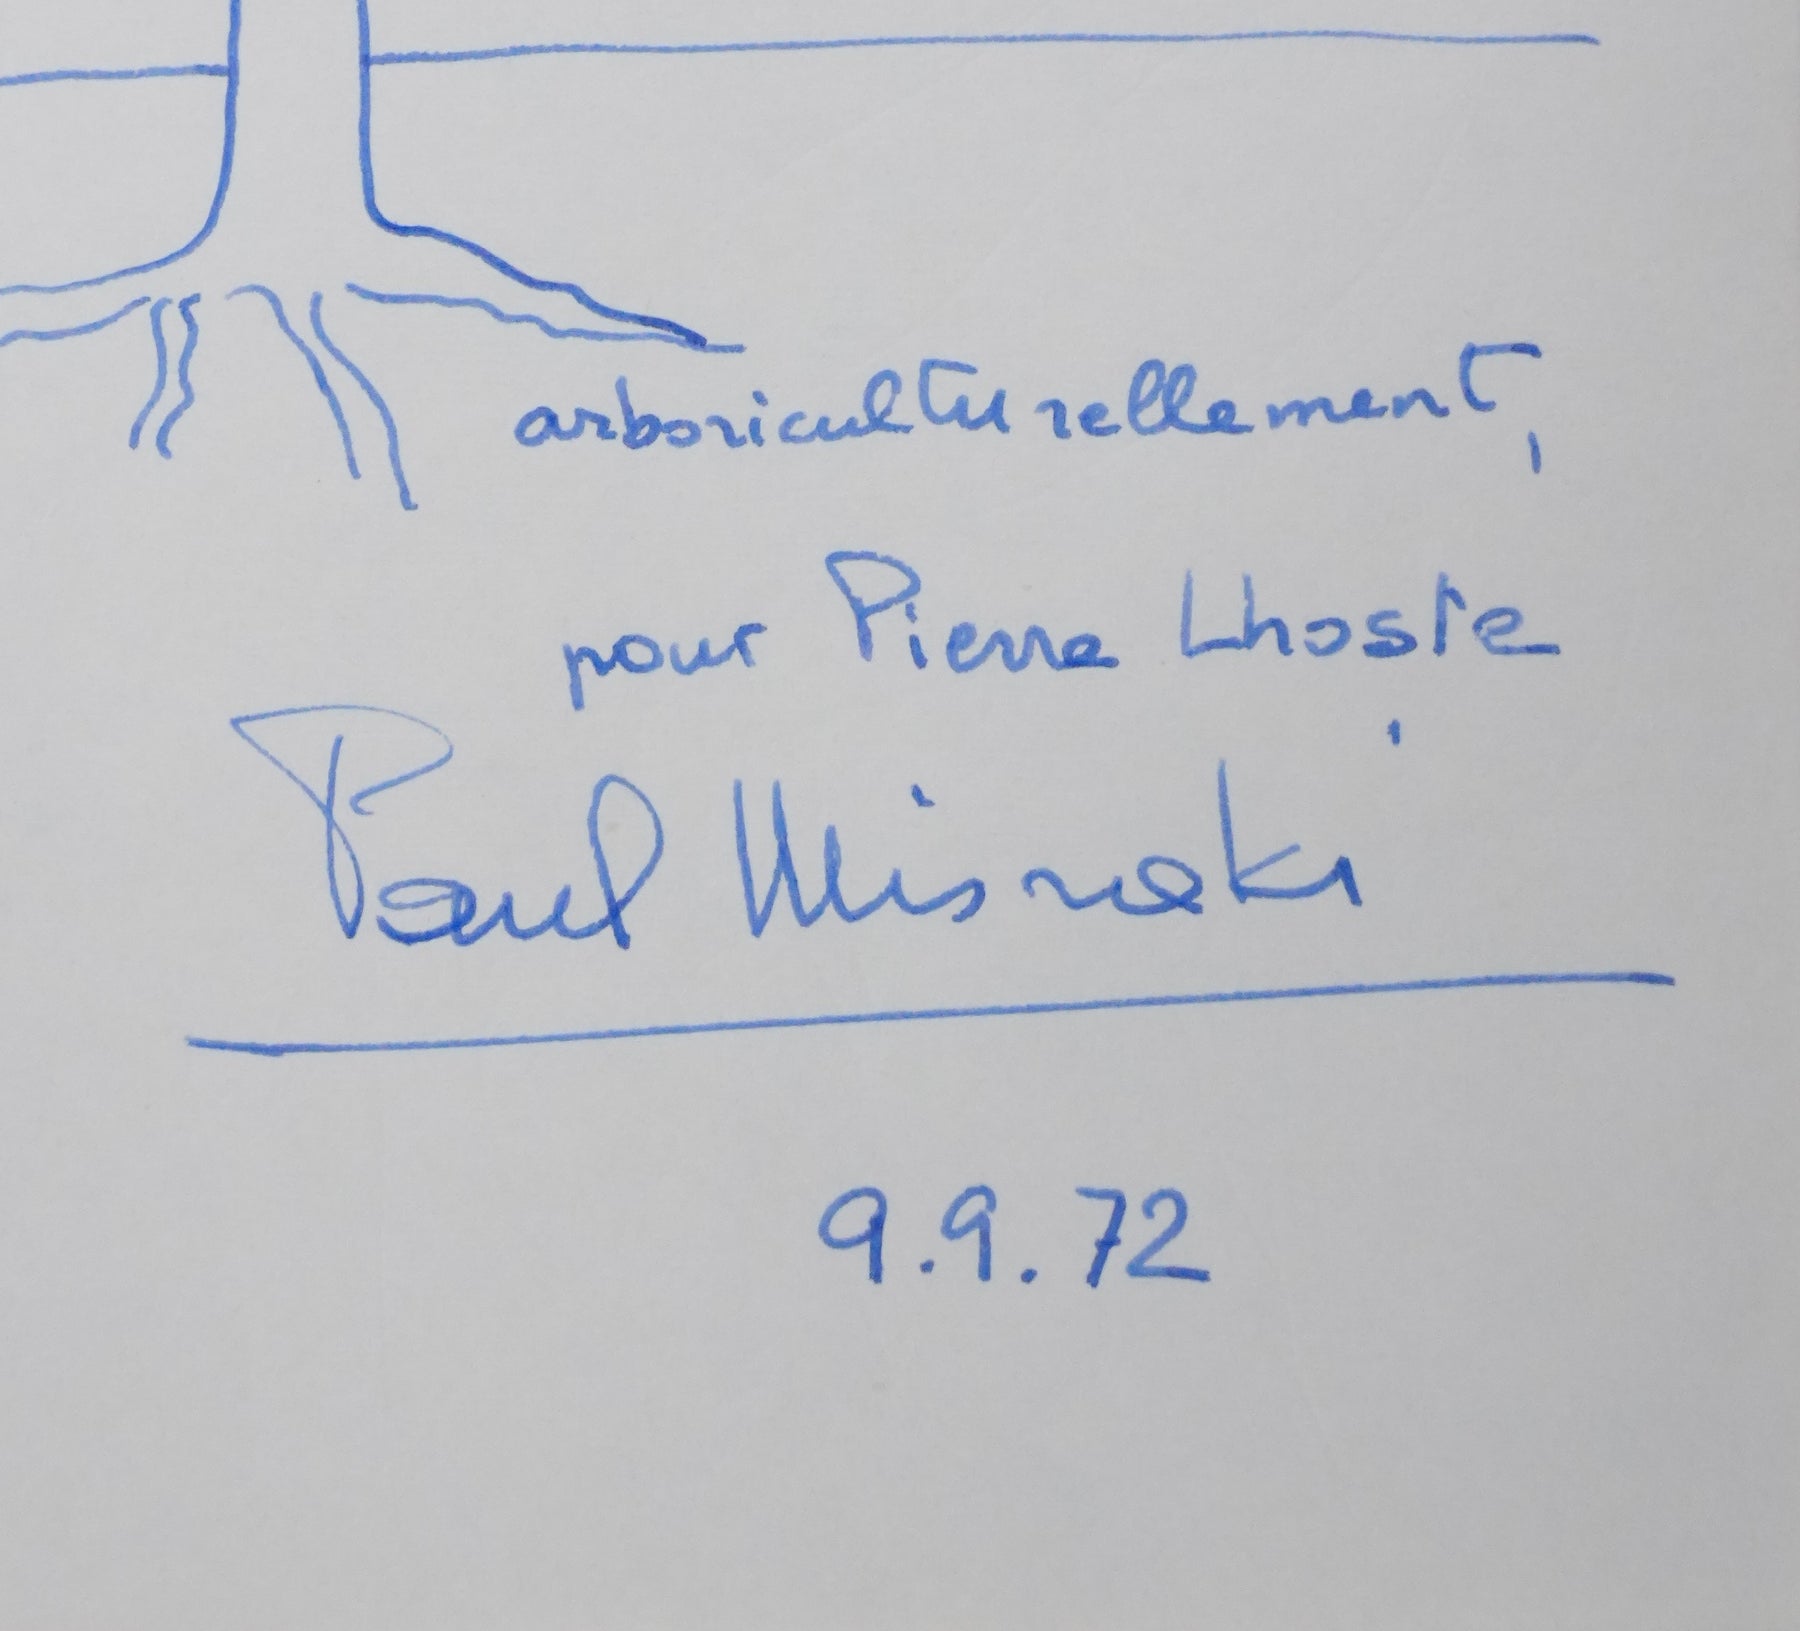 arboriculturellement,
pour Pierre Lhoste
Paul Misraki
9.9.72